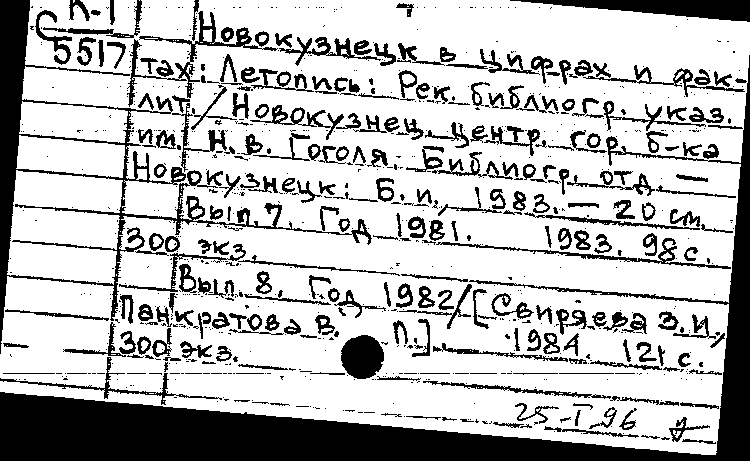 С П-1
5517
Новокузнецк в цифрах и фак-
тах: Летопись: Рек. библиогр. указ.
лит. / Новокузнец. центр. гор. б-ка
им. Н. В. Гоголя. Библиогр. отд. —
Новокузнецк: Б. и., 1983. — 20 см.
Вып. 7. Год 1981. 1983. 98 с.
300 экз.
Вып. 8. Год 1982 / [Свиряева З. И.,
Панкратова В. П.]. 1984. 121 с.
300 экз.
25-I-96